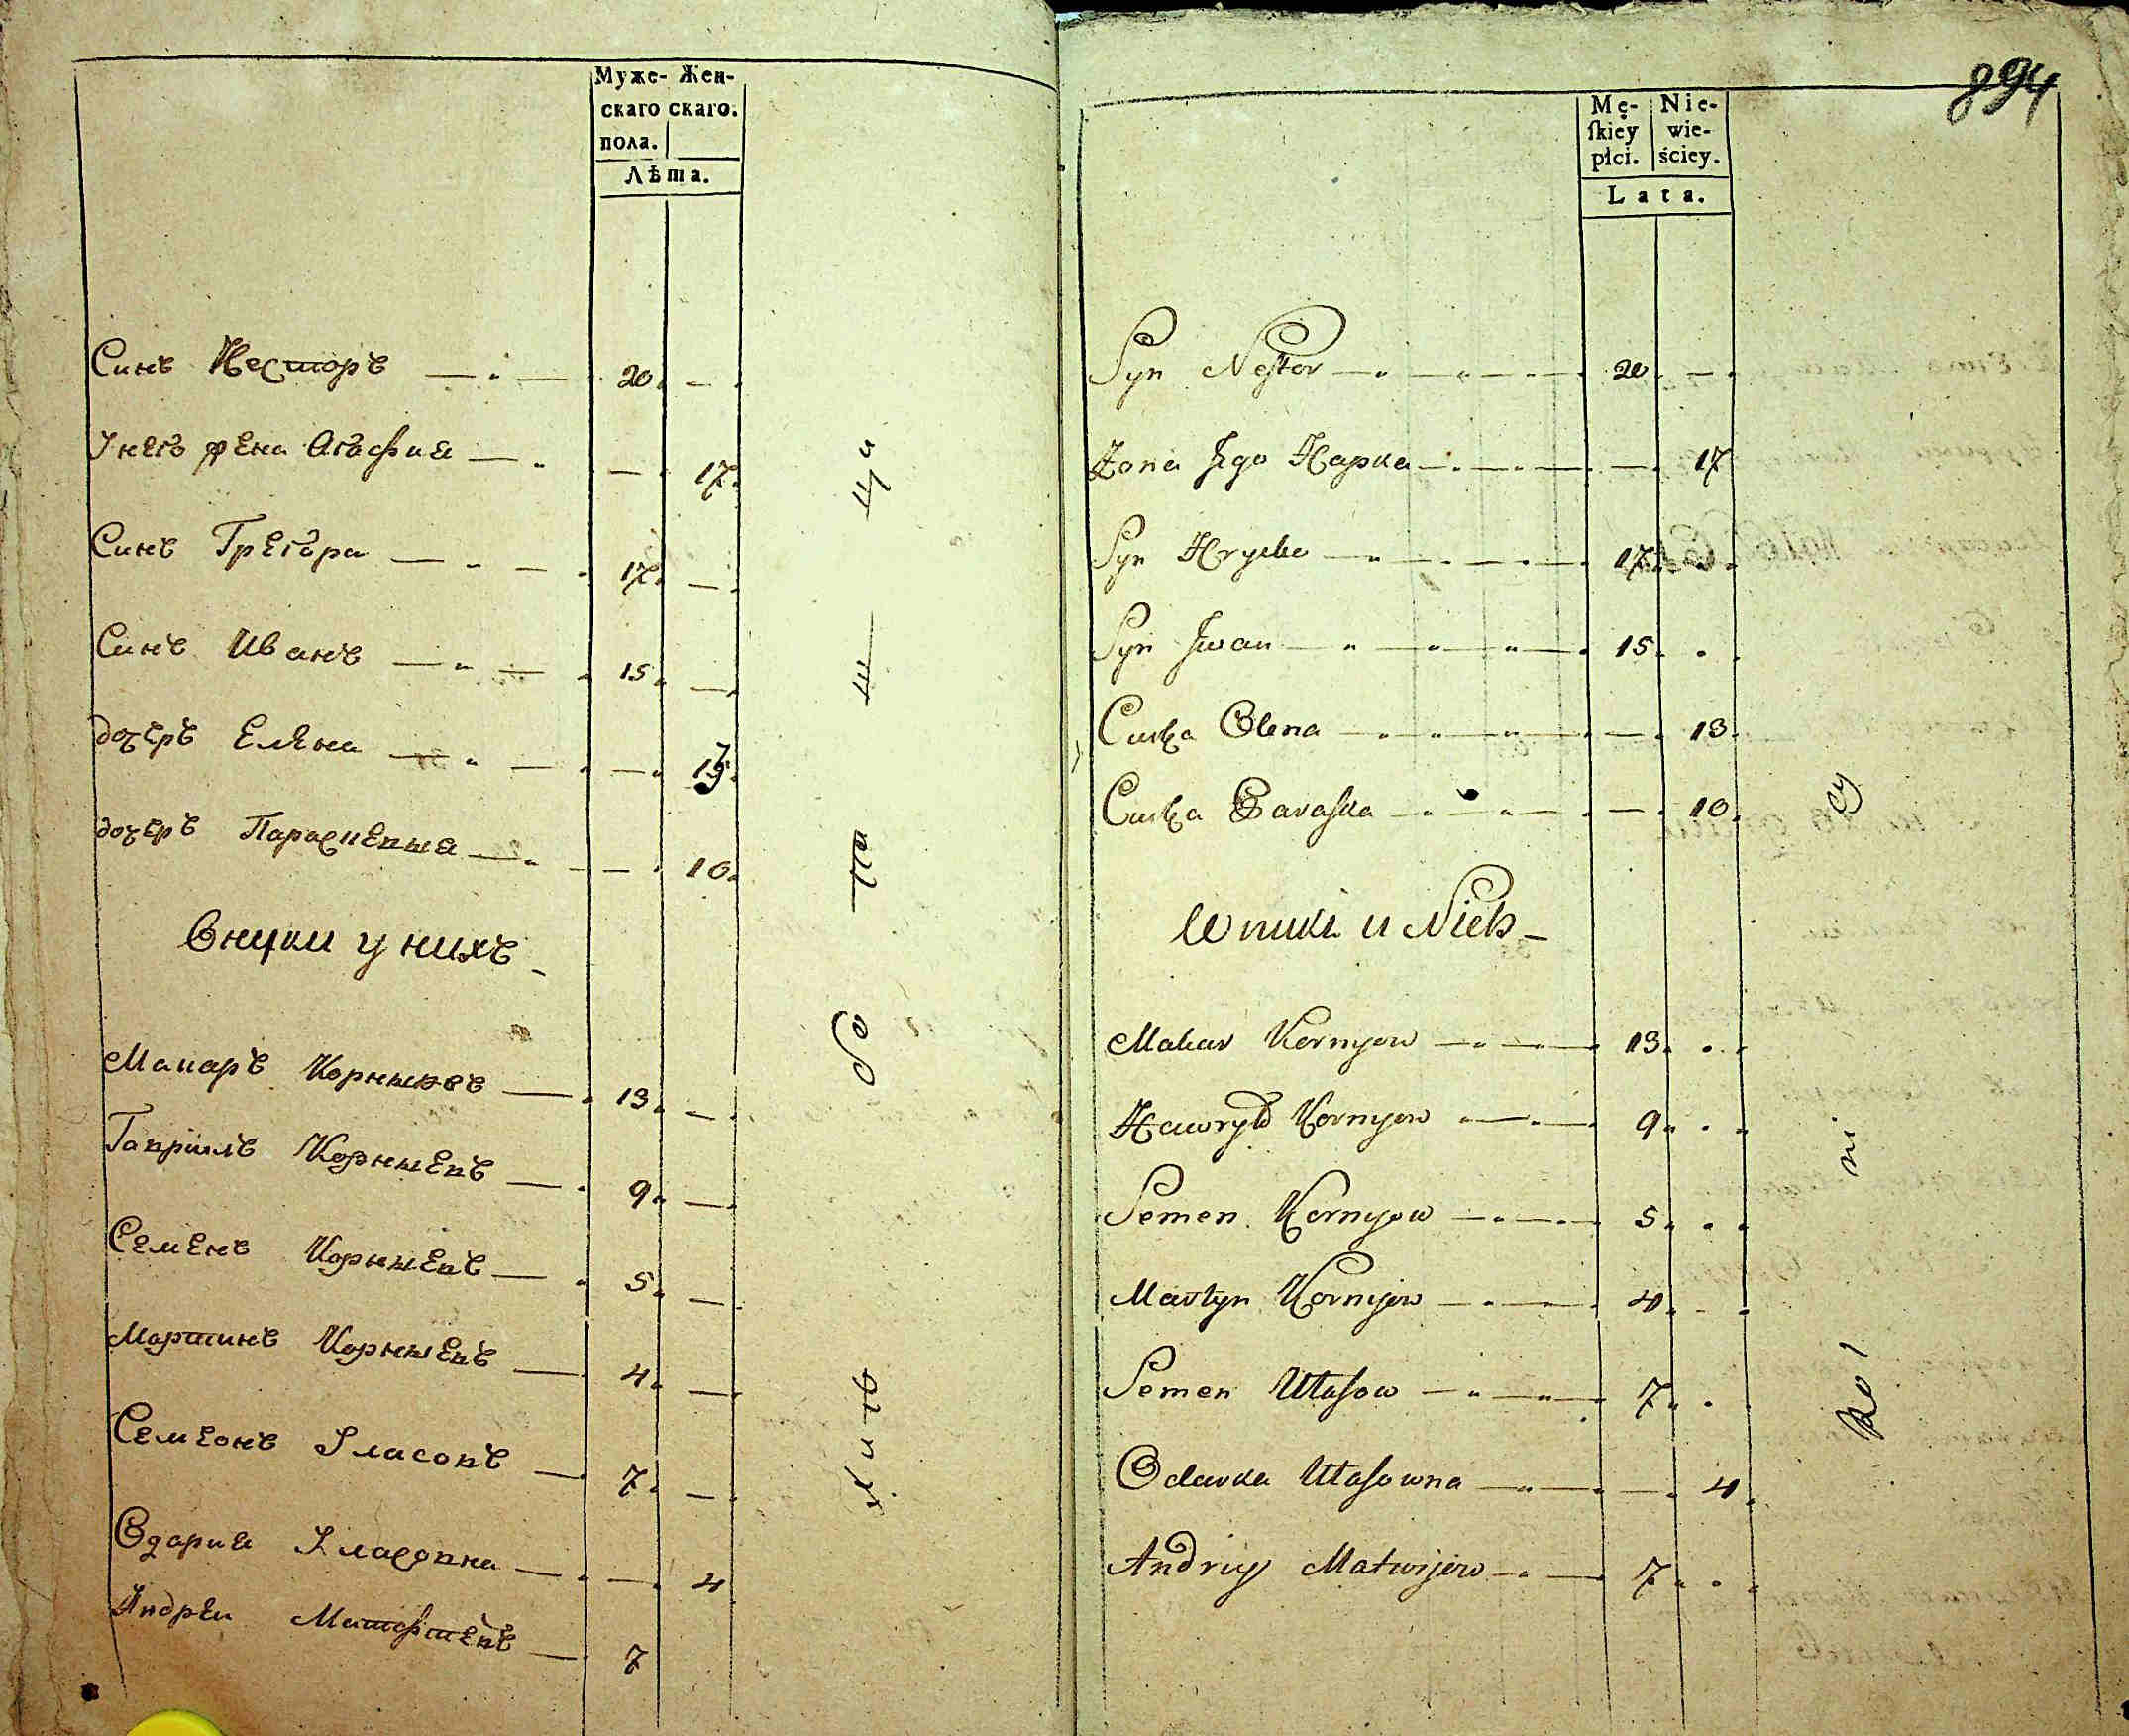 Муже- Жен-
скаго скаго.
пола.
Лѣта.
Синъ Несторъ 20. —
У него жена Агафия — 17.
Синъ Грегора 17. —
Синъ Иванъ 15. —
дочеръ Елена — 13.
дочеръ Парасиевия — 10.
Внуки у нихъ
Макаръ Корниевъ 13. —
Гаврилъ Корниевъ 9. —
Семенъ Корниевъ 5. —
Мартинъ Корниевъ 4. —
Семеонъ Уласовъ 7. —
Одария Уласовна — 4
Андреи Матфиевъ 7
894
Mę- Nie-
ſkiey wie-
płci. ściey.
Lata.
Syn Neſtor 20. —
Żona Jego Hapka — 17
Syn Hryćko 17.
Syn Jwan 15.
Curka Olena — 13.
Curka Paraſka — 10.
Wnuki u Nich
Makar Kornyow 13.
Hawryło Kornyow 9.
Semen Kornyow 5.
Martyn Kornijow 4.
Semen Ułaſow 7.
Odarka Ułaſowna — 4.
Andriy Matwijow 7.